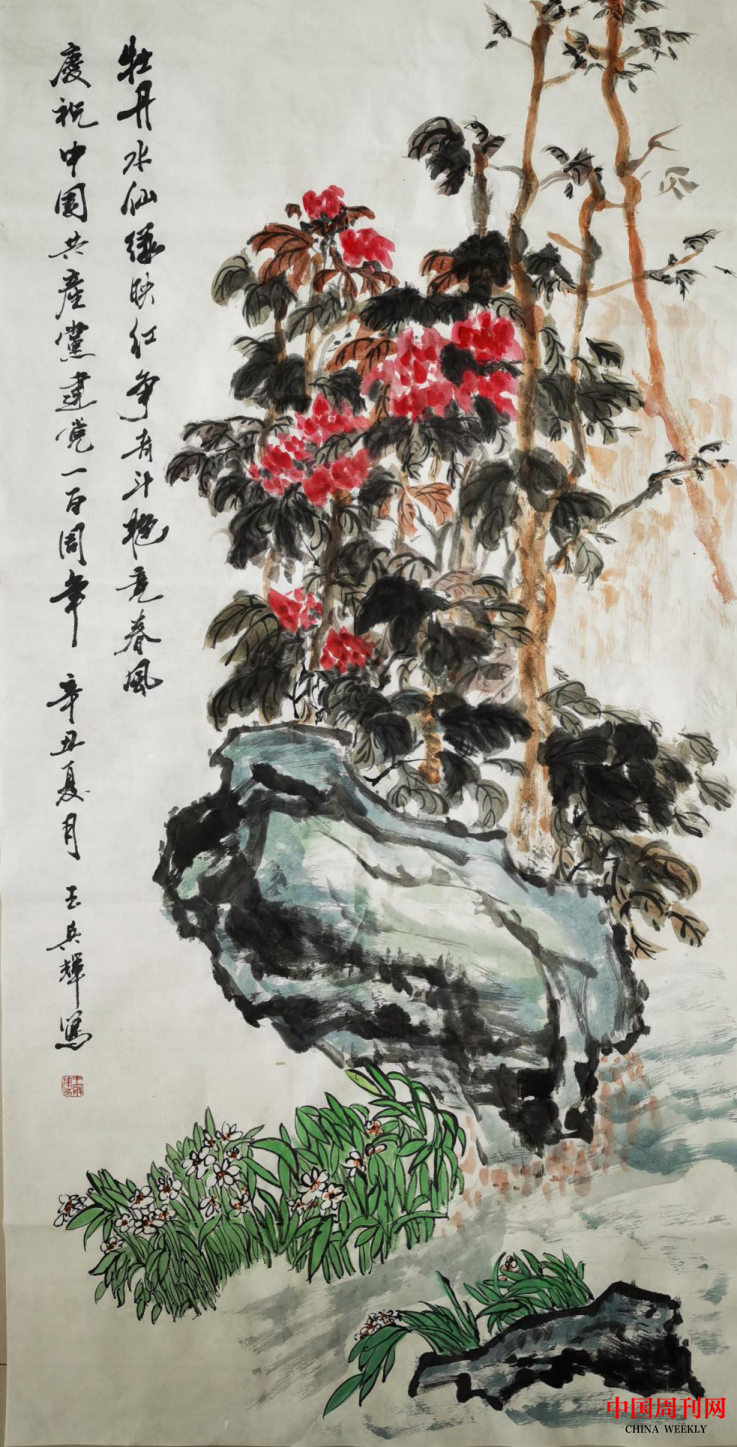 牡丹水仙绿映红争奇斗艳竞春风
慶祝中国共產黨建党一百周年 辛丑夏月 王英輝写
中国周刊网
CHINA WEEKLY